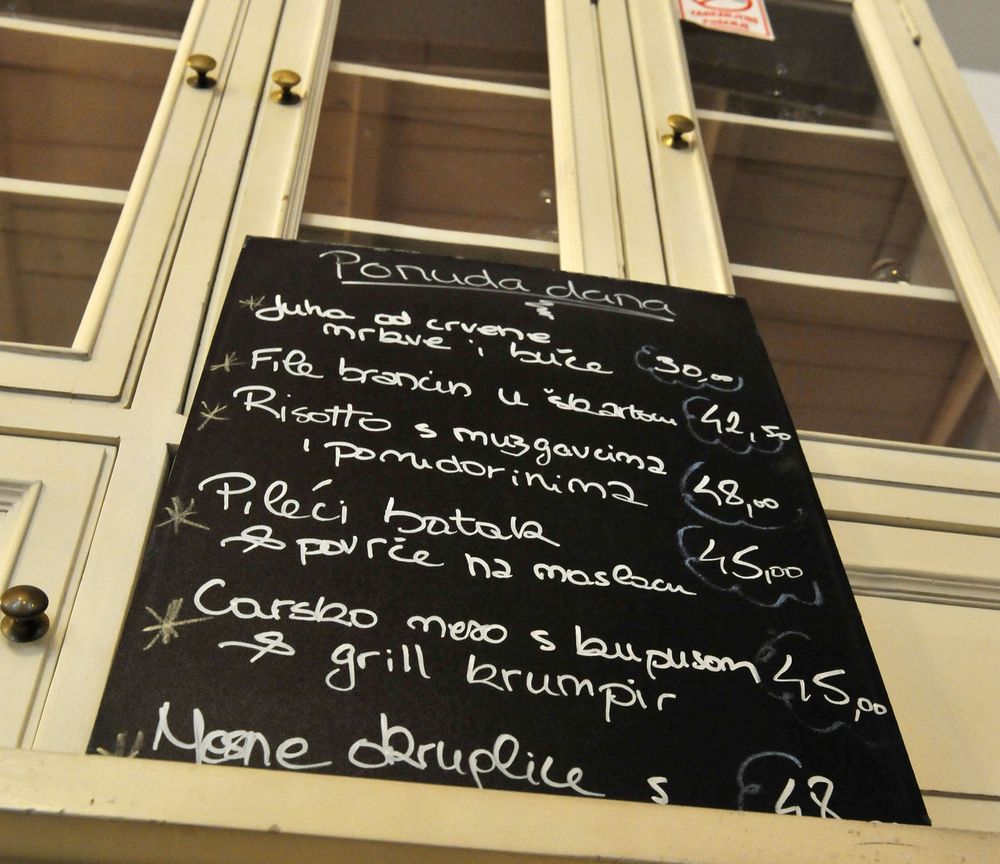 Ponuda dana
* Juha od crvene
mrkve i buče 30,00
* File brancin u škartocu 42,50
* Risotto s muzgavcima
i pomidorinima 48,00
* Pileći batak
povrće na maslacu 45,00
* Carsko meso s kupusom 45,00
grill krumpir
* Mesne okruglice s 48